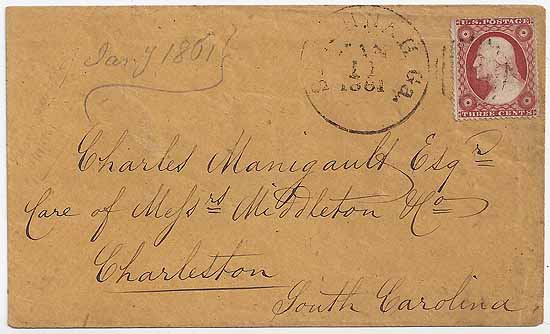 Jany 1861
SAVANNAH Ga.
JAN
1861
U.S. POSTAGE
THREE CENTS
Charles Manigault Esqr
Care of Messrs Middleton & Co
Charleston
South Carolina